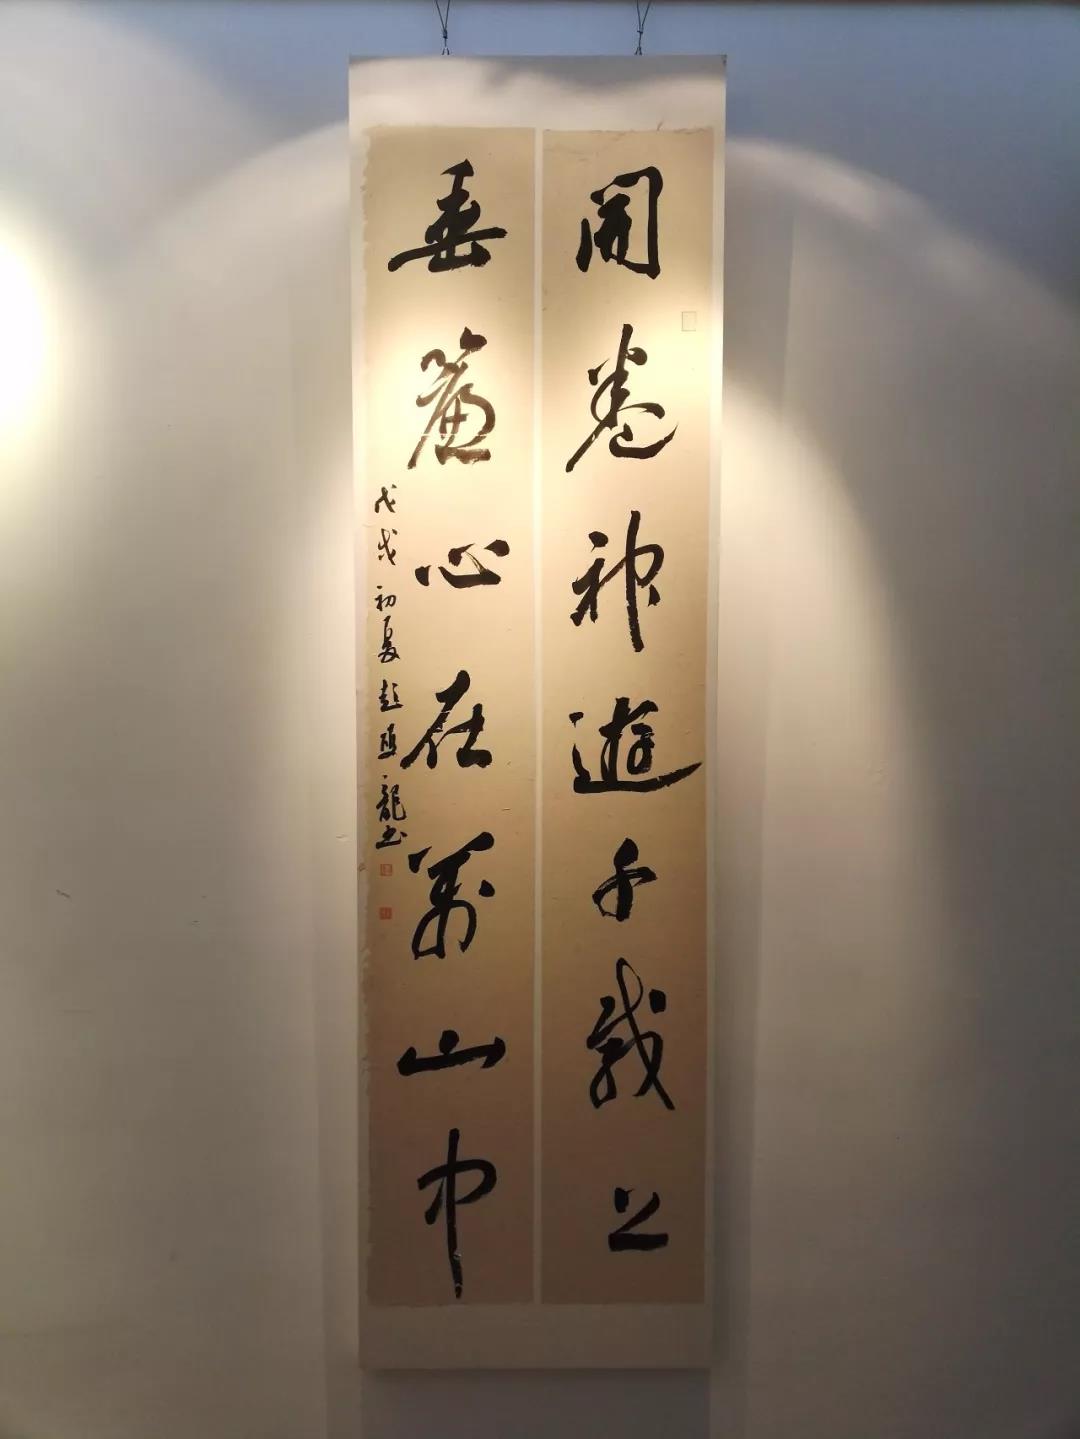 開卷神遊千載上
垂簾心在萬山中
戊戌初夏趙亞龍书